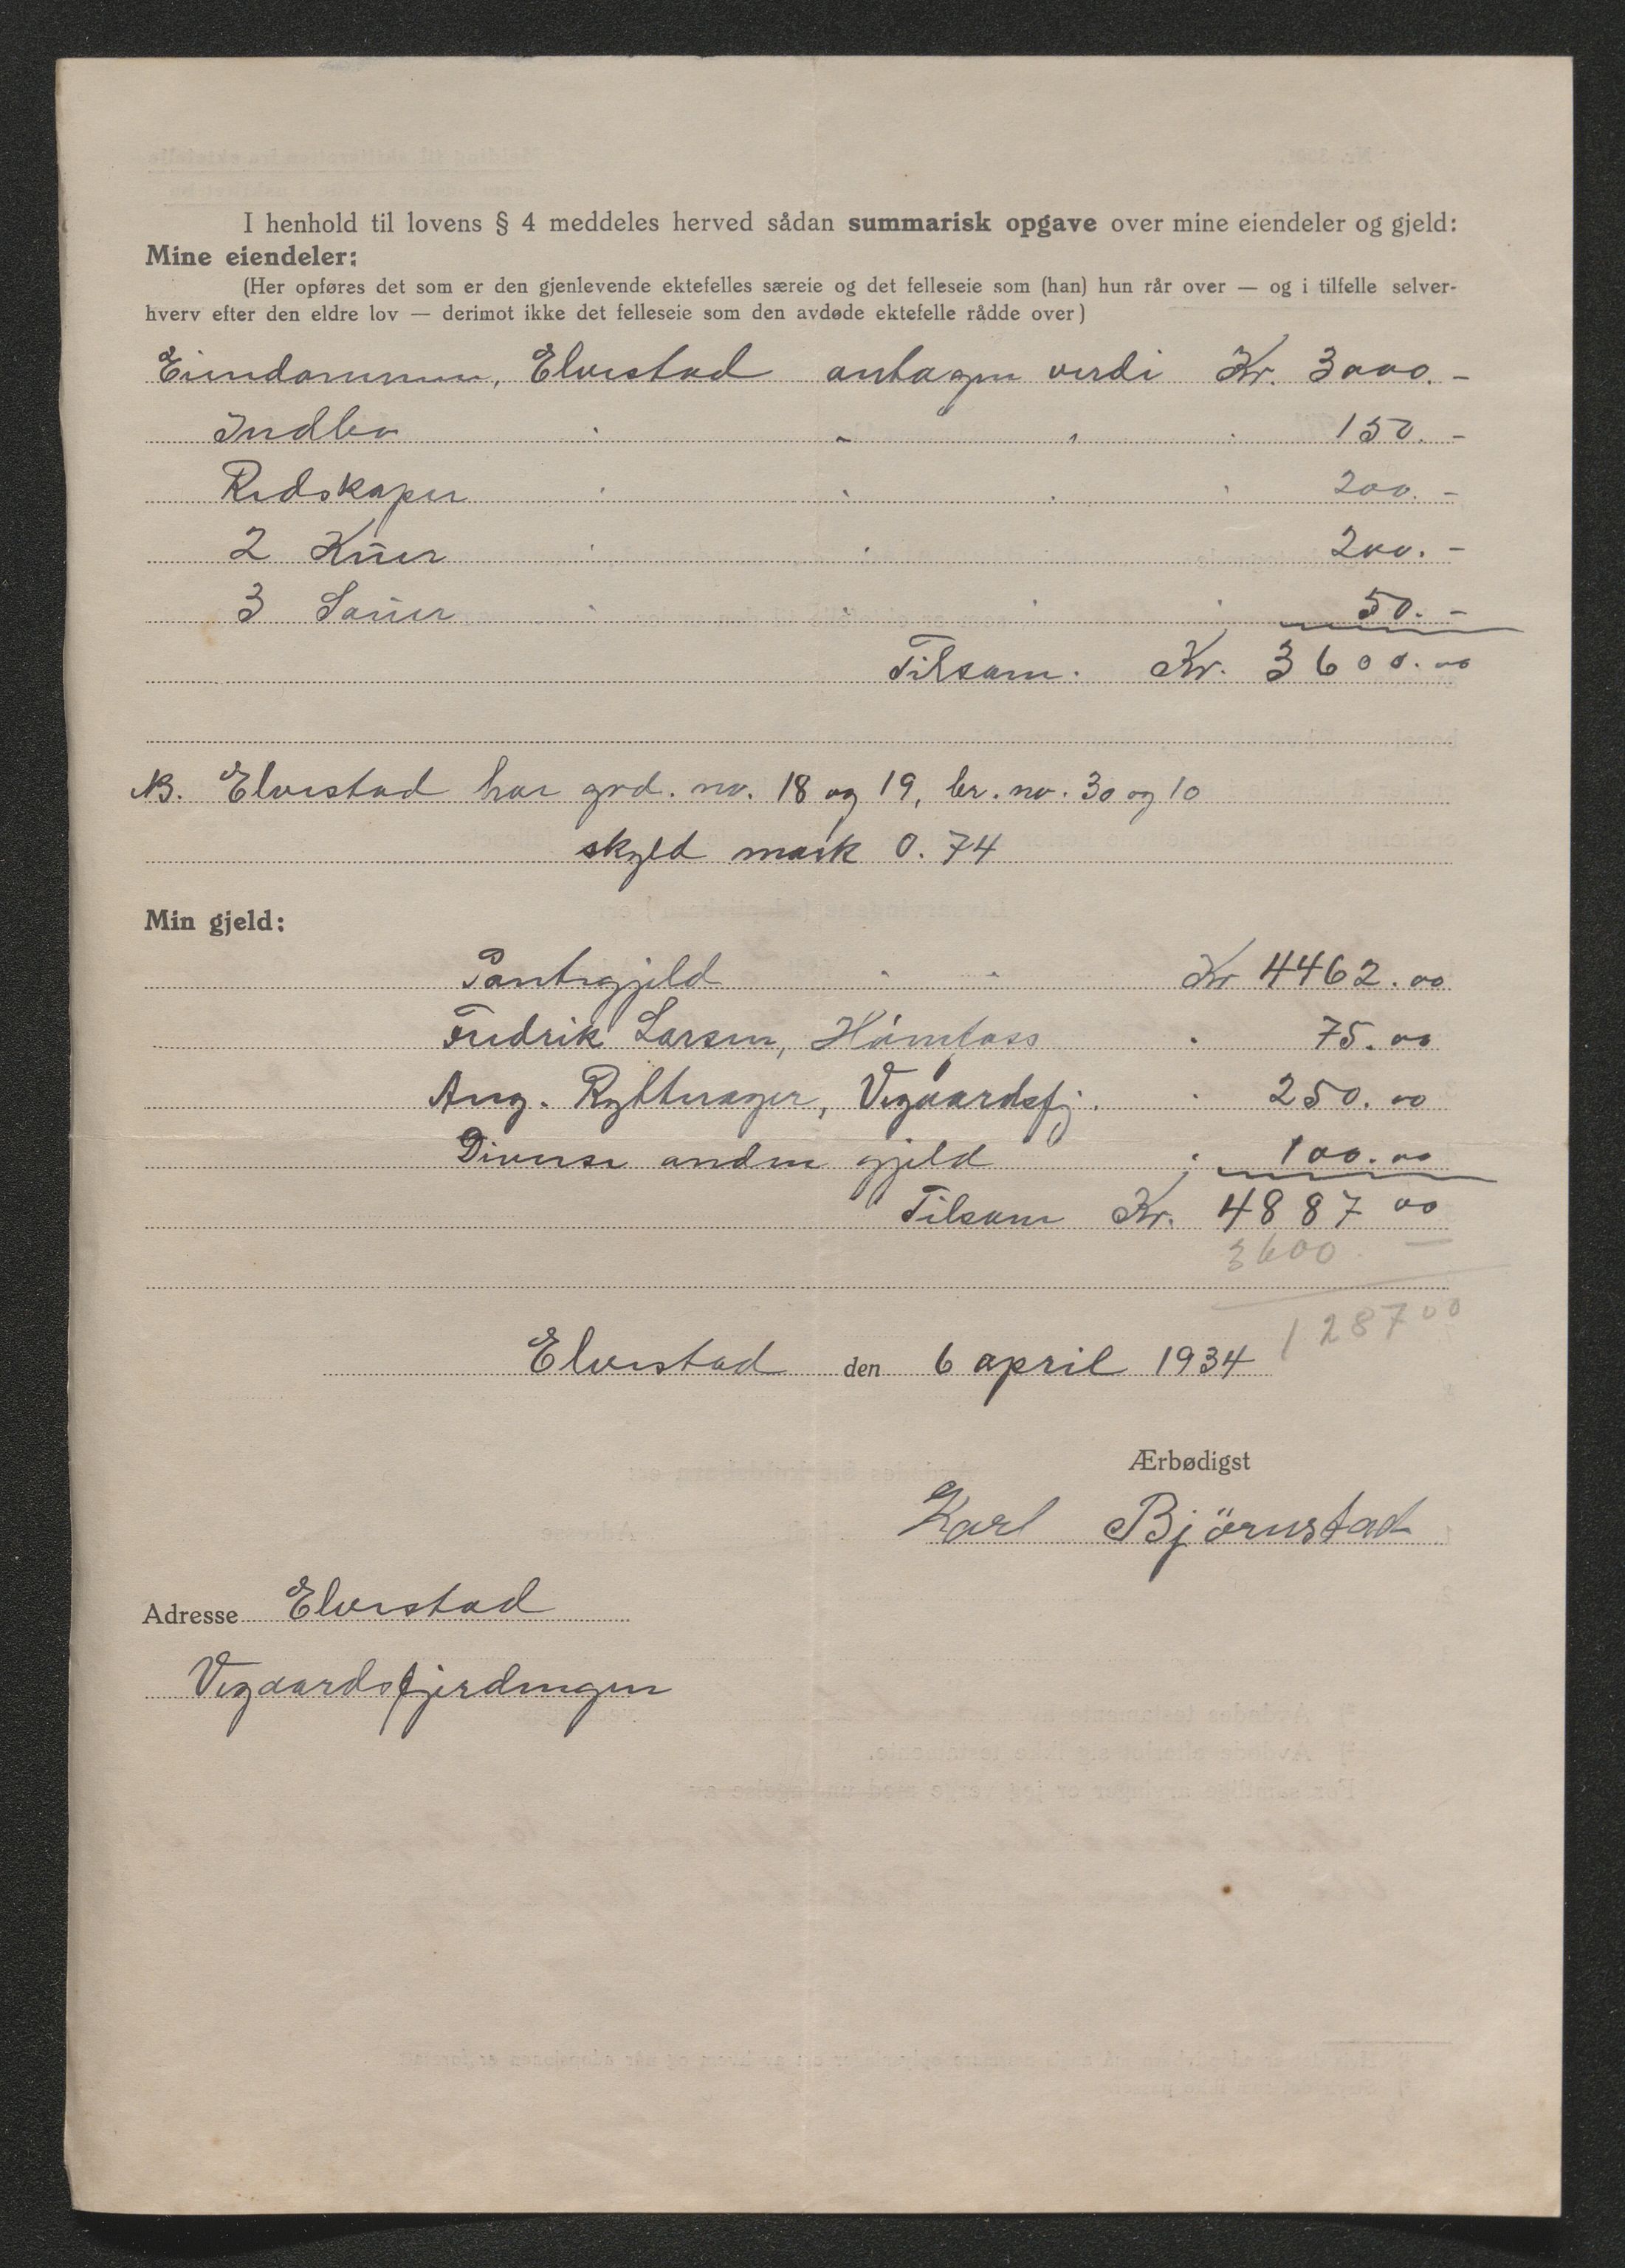 I henhold til lovens § 4 meddeles herved sådan summarisk opgave over mine eiendeler og gjeld:
Mine eiendeler:
(Her opføres det som er den gjenlevende ektefelles særeie og det felleseie som (han) hun rår over — og i tilfelle selver-
hverv efter den eldre lov — derimot ikke det felleseie som den avdøde ektefelle rådde over)
Eiendommen, Elvestad antagen verdi Kr. 3000.-
Indbo 150.-
Redskaper 200.-
2 Kuer 200.-
3 Sauer 50.-
Tilsam. Kr. 3600.00
NB. Elvestad har grd. no. 18 og 19, br. no. 30 og 10
skyld mark 0.74
Min gjeld:
Pantegjeld Kr 4462.00
Fredrik Larsen, 75.00
Aug. Rytterager, Vegaardsfj. 250.00
Diverse anden gjeld 100.00
Tilsam Kr. 4887 00
3600. —
1287 00
Elvestad den 6 april 1934
Ærbødigst
Karl Björnstad
Adresse Elvestad
Vegaardsfjerdingen